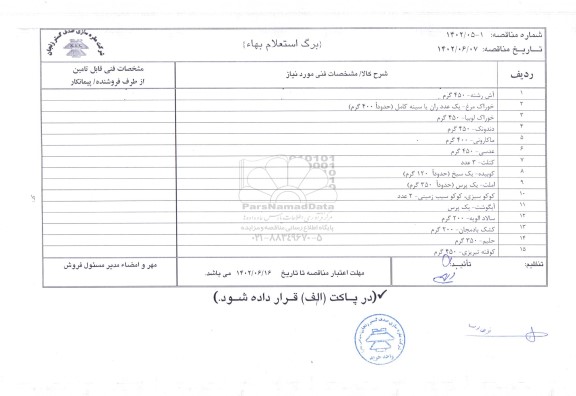 شماره مناقصه: ۱-۱۴۰۲/۰۵
تاریخ مناقصه: ۱۴۰۲/۰۶/۰۷
(برگ استعلام بهاء)
ردیف
شرح کالا/ مشخصات فنی مورد نیاز
مشخصات فنی قابل تامین
از طرف فروشنده/ پیمانکار
۱ آش رشته- ۴۵۰ گرم
۲ خوراک مرغ- یک عدد ران یا سینه کامل (حدوداً ۴۰۰ گرم)
۳ خوراک لوبیا- ۴۵۰ گرم
۴ دندونک- ۲۵۰ گرم
۵ ماکارونی- ۴۰۰ گرم
۶ عدسی- ۴۵۰ گرم
۷ کتلت- ۳ عدد
۸ کوبیده- یک سیخ (حدوداً ۱۲۰ گرم)
۹ املت- یک پرس (حدوداً ۳۵۰ گرم)
۱۰ کوکو سبزی، کوکو سیب زمینی- ۲ عدد
۱۱ آبگوشت- یک پرس
۱۲ سالاد الویه- ۳۰۰ گرم
۱۳ کشک بادمجان- ۳۰۰ گرم
۱۴ حلیم- ۳۵۰ گرم
۱۵ کوفته تبریزی- ۳۵۰ گرم
ParsNamadData
پایگاه اطلاع رسانی مناقصه و مزایده
۰۲۱-۸۸۳۴۹۶۷۰-۵
تنظیم:
تائید:
مهلت اعتبار مناقصه تا تاریخ ۱۴۰۲/۰۶/۱۶ می باشد.
مهر و امضاء مدیر مسئول فروش
✓(در پاکت (الف) قرار داده شود.)